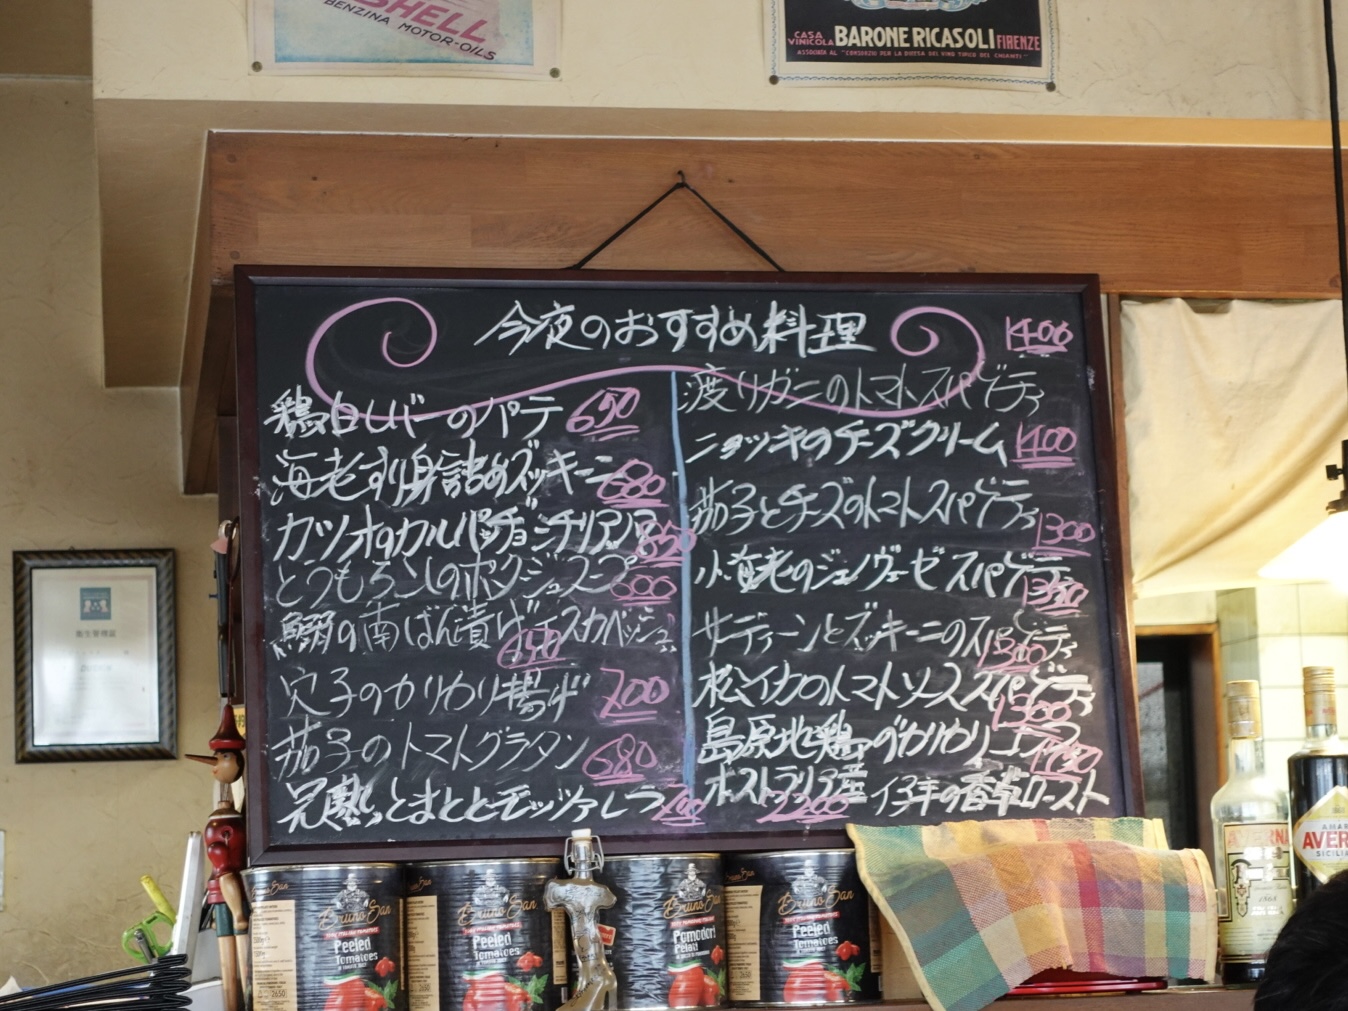 SHELL
BENZINA MOTOR-OILS
CASA VINICOLA BARONE RICASOLI FIRENZE
今夜のおすすめ料理
鶏白レバーのパテ 650
海老すり身詰めズッキーニ 680
カツオのカルパッチョシチリア風 850
とうもろこしのポタージュスープ 600
鯵の南ばん漬け エスカベッシュ
650
穴子のカリカリ揚げ 700
茄子のトマトグラタン 680
完熟とまととモッツァレラ
1400
渡りガニのトマトスパゲティ
ニョッキのチーズクリーム 1400
茄子とチーズのトマトスパゲティ
1300
小海老のジェノヴェーゼスパゲティ
サーディーンとズッキーニのスパゲティ
1300
松イカのトマトソーススパゲティ
1300
島原地鶏のカリカリ
オーストラリア産 仔羊の香草ロースト
2200
衛生管理
Bruno San
Peeled
Tomatoes
2650
Bruno San
Peeled
Tomatoes
2650
Bruno San
Pomodori
Pelati
Bruno San
Peeled
Tomatoes
2650
AVERNA
1868
AMARO
AVERNA
SICILIANO